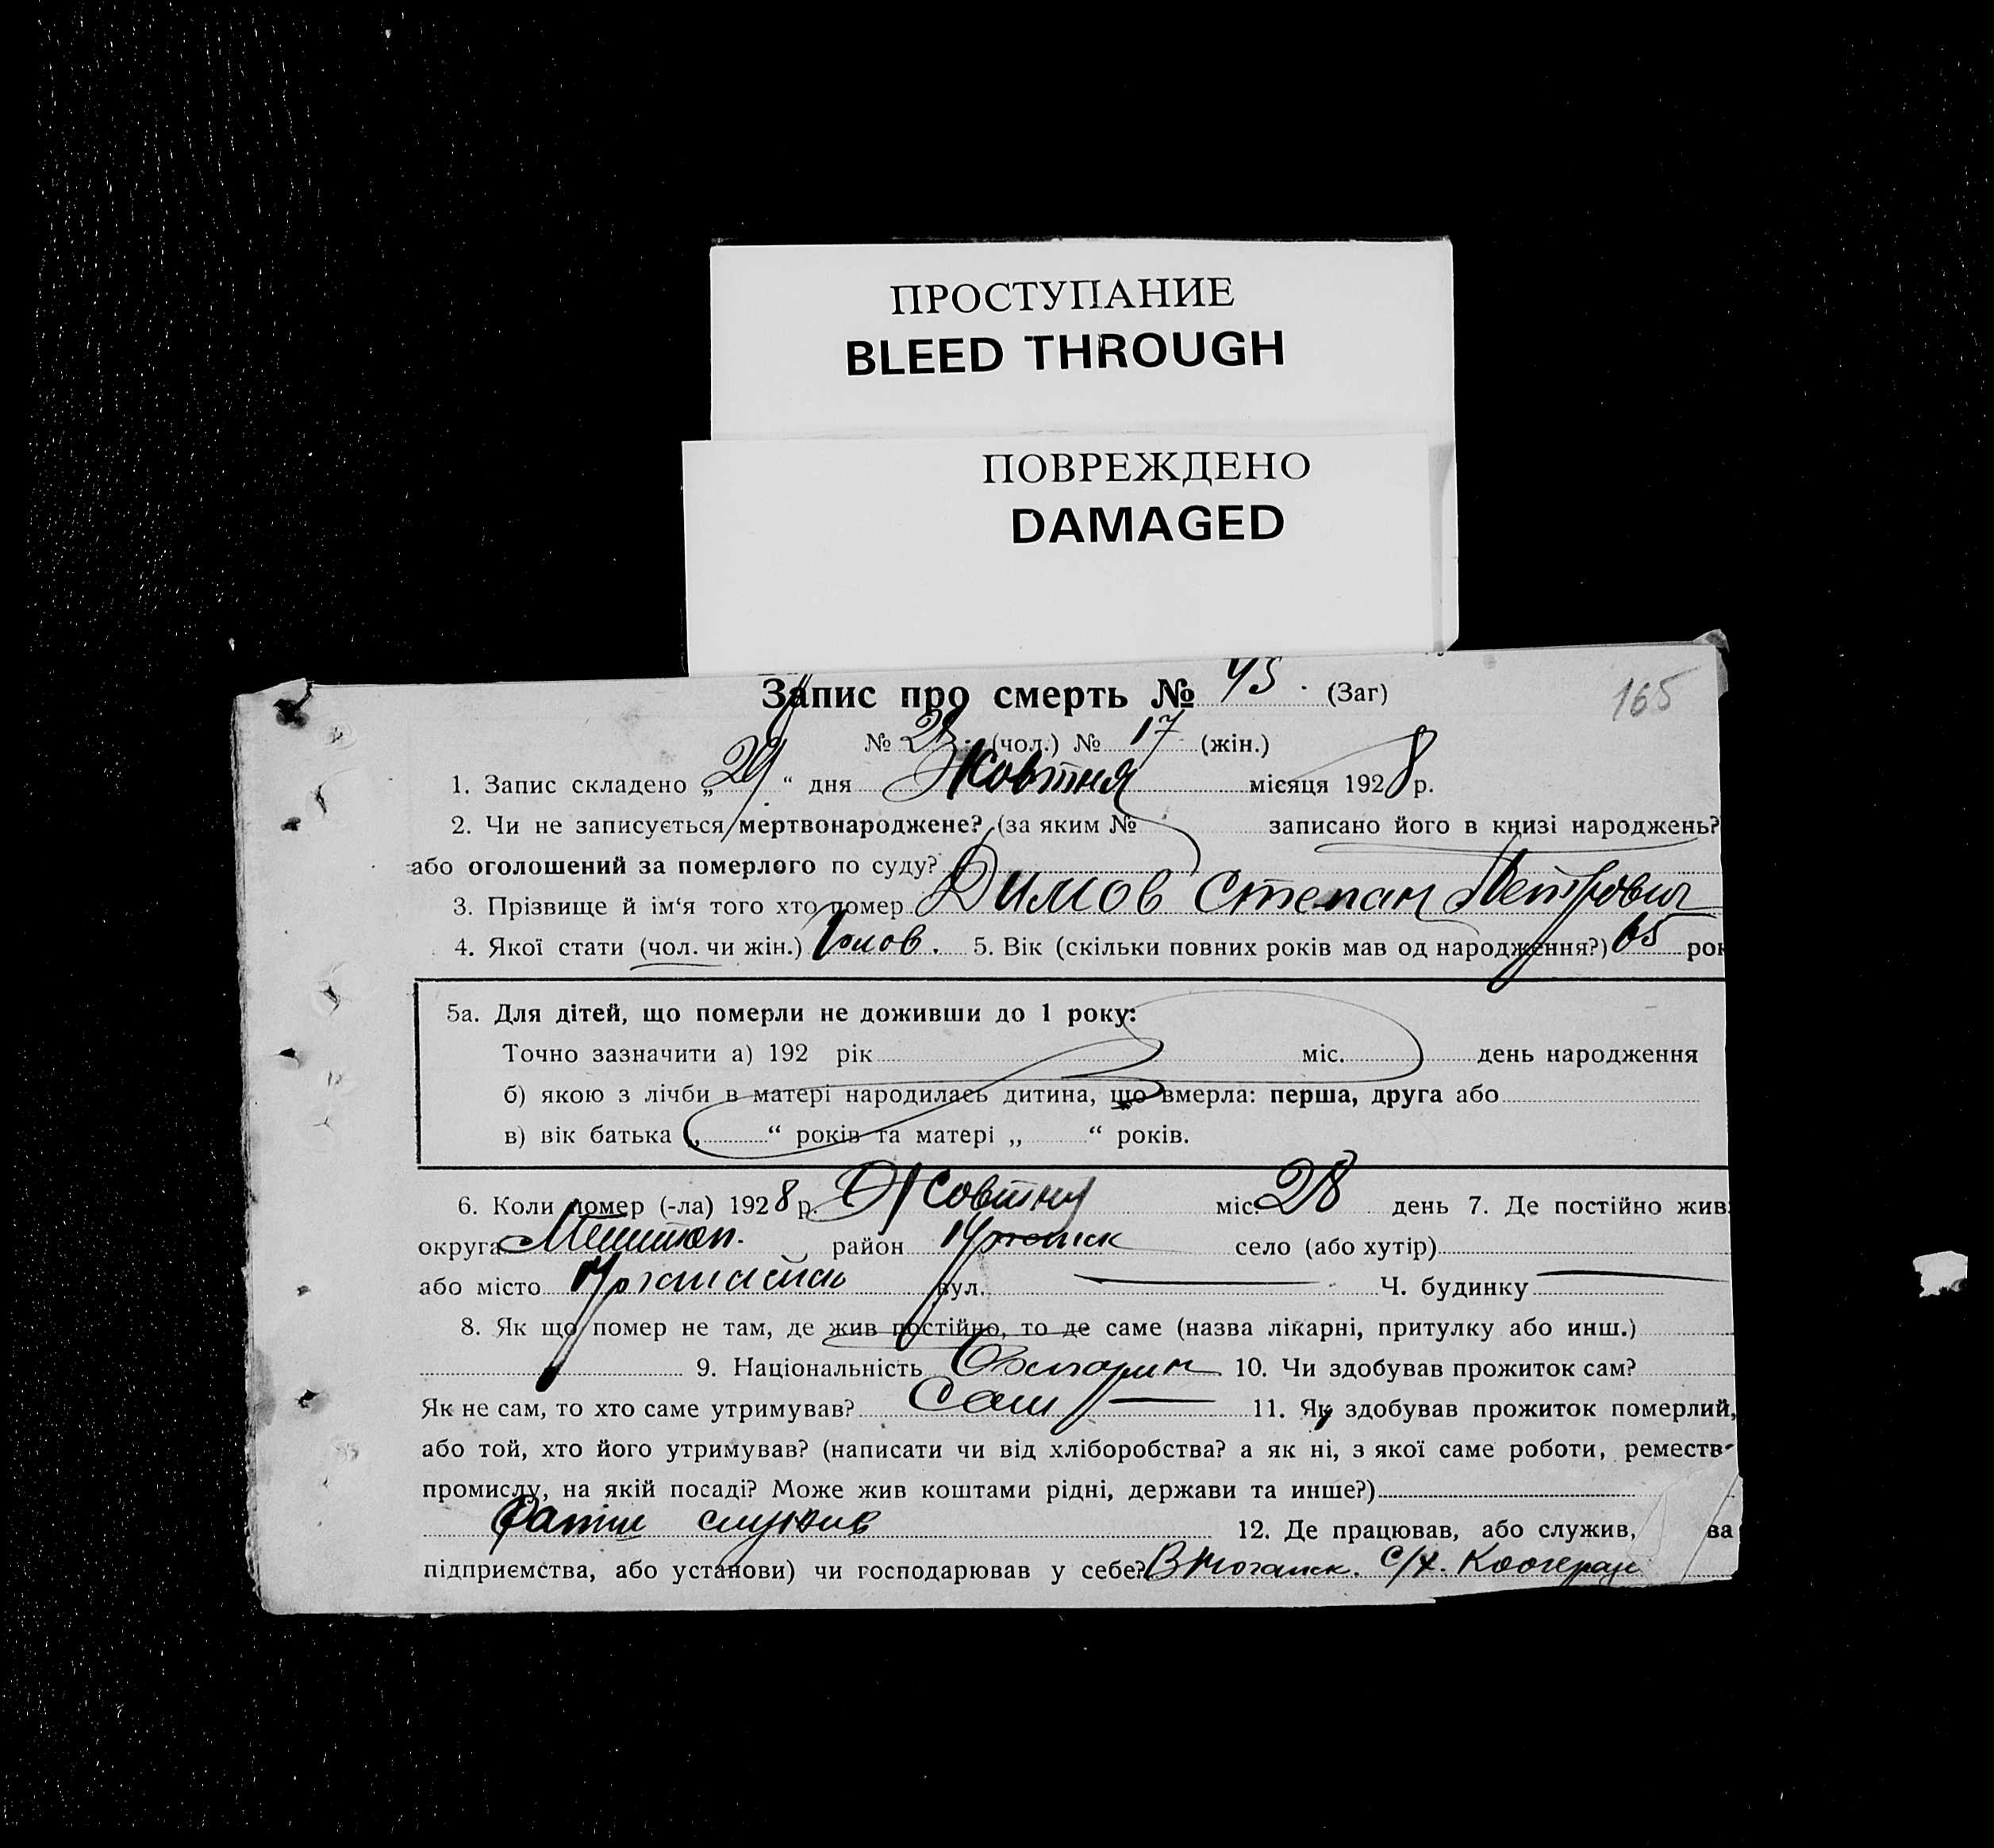 ПРОСТУПАНИЕ
BLEED THROUGH
ПОВРЕЖДЕНО
DAMAGED
165
Запис про смерть № 45. (Заг)
№ 28. (чол.) № 17 (жін.)
1. Запис складено „29“ дня Жовтня місяця 1928 р.
2. Чи не записується мертвонароджене? (за яким № записано його в книзі народжень?
або оголошений за померлого по суду?
3. Прізвище й ім‘я того хто помер Димов Степан Петрович
4. Якої стати (чол. чи жін.) Чолов. 5. Вік (скільки повних років мав од народження?) 65 рок
5а. Для дітей, що померли не доживши до 1 року:
Точно зазначити а) 192 рік міс. день народження
б) якою з лічби в матері народилась дитина, що вмерла: перша, друга або
в) вік батька „ “ років та матері „ “ років.
6. Коли помер (-ла) 1928 р. Жовтня міс. 28 день 7. Де постійно жив
округа Мелитоп. район село (або хутір)
або місто вул. Ч. будинку
8. Як що помер не там, де жив постійно, то де саме (назва лікарні, притулку або инш.)
9. Національність Болгарин 10. Чи здобував прожиток сам?
Як не сам, то хто саме утримував? Сам 11. Як здобував прожиток померлий,
або той, хто його утримував? (написати чи від хліборобства? а як ні, з якої саме роботи, реместв
промислу, на якій посаді? Може жив коштами рідні, держави та инше?)
служив 12. Де працював, або служив, ва
підприємства, або установи) чи господарював у себе? В Ногайск. С/х. Коопрац